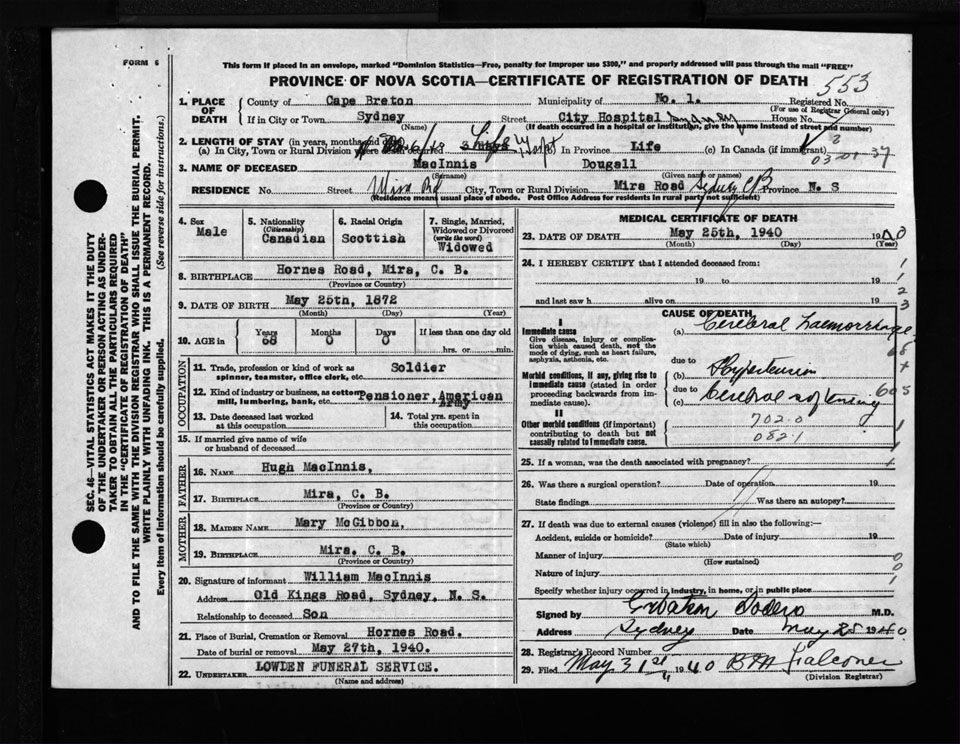 FORM 6
This form if placed in an envelope, marked "Dominion Statistics—Free, penalty for improper use $300," and properly addressed will pass through the mail "FREE"
PROVINCE OF NOVA SCOTIA—CERTIFICATE OF REGISTRATION OF DEATH
553
SEC. 46—VITAL STATISTICS ACT MAKES IT THE DUTY
OF THE UNDERTAKER OR PERSON ACTING AS UNDER-
TAKER TO OBTAIN ALL THE PARTICULARS REQUIRED
IN THE "CERTIFICATE OF REGISTRATION OF DEATH"
AND TO FILE THE SAME WITH THE DIVISION REGISTRAR WHO SHALL ISSUE THE BURIAL PERMIT.
WRITE PLAINLY WITH UNFADING INK. THIS IS A PERMANENT RECORD.
Every item of information should be carefully supplied. (See reverse side for instructions.)
1. PLACE OF DEATH
County of Cape Breton Municipality of No. 1. Registered No.
(For use of Registrar General only)
If in City or Town Sydney Street City Hospital Sydney House No.
(Name) (If death occurred in a hospital or institution, give the name instead of street and number)
2. LENGTH OF STAY (in years, months and
(a) In City, Town or Rural Division where death occurred (b) In Province Life (c) In Canada (if immigrant)
03-01-37
3. NAME OF DECEASED MacInnis Dougall
(Surname) (Given name or names)
RESIDENCE No. Street Mira Rd City, Town or Rural Division Mira Road Sydney CB Province N. S
(Residence means usual place of abode. Post Office Address for residents in rural parts not sufficient)
4. Sex
Male
5. Nationality
(Citizenship)
Canadian
6. Racial Origin
Scottish
7. Single, Married, Widowed or Divorced
(write the word)
Widowed
8. BIRTHPLACE Hornes Road, Mira, C. B.
(Province or Country)
9. DATE OF BIRTH May 25th, 1872
(Month) (Day) (Year)
10. AGE in Years Months Days If less than one day old
68 0 0 hrs. or min.
OCCUPATION
11. Trade, profession or kind of work as Soldier
spinner, teamster, office clerk, etc.
12. Kind of industry or business, as cotton Pensioner, American
mill, lumbering, bank, etc. Army
13. Date deceased last worked at this occupation
14. Total yrs. spent in this occupation
15. If married give name of wife or husband of deceased
FATHER
16. NAME Hugh MacInnis,
17. BIRTHPLACE Mira, C. B.
(Province or Country)
MOTHER
18. MAIDEN NAME Mary McGibbon,
19. BIRTHPLACE Mira, C. B.
(Province or Country)
20. Signature of informant William MacInnis
Address Old Kings Road, Sydney, N. S.
Relationship to deceased Son
21. Place of Burial, Cremation or Removal Hornes Road.
Date of burial or removal May 27th, 1940.
22. UNDERTAKER LOWDEN FUNERAL SERVICE.
(Name and address)
MEDICAL CERTIFICATE OF DEATH
23. DATE OF DEATH May 25th, 1940 1940
(Month) (Day) (Year)
24. I HEREBY CERTIFY that I attended deceased from:
19 to 19
and last saw h alive on 19
CAUSE OF DEATH
I
Immediate cause
Give disease, injury or complication which caused death, not the mode of dying, such as heart failure, asphyxia, asthenia, etc.
(a) Cerebral haemorrhage
due to
Morbid conditions, if any, giving rise to immediate cause (stated in order proceeding backwards from immediate cause).
(b) Hypertension
due to
(c) Cerebral softening
II
Other morbid conditions (if important) contributing to death but not causally related to immediate cause.
702.0
082.1
605
25. If a woman, was the death associated with pregnancy?
26. Was there a surgical operation? Date of operation 19
State findings Was there an autopsy?
27. If death was due to external causes (violence) fill in also the following:—
Accident, suicide or homicide? Date of injury 19
(State which)
Manner of injury
(How sustained)
Nature of injury
Specify whether injury occurred in industry, in home, or in public place
Signed by M.D.
Address Sydney Date May 25 1940
28. Registrar's Record Number
29. Filed May 31st 1940 Falconer
(Division Registrar)